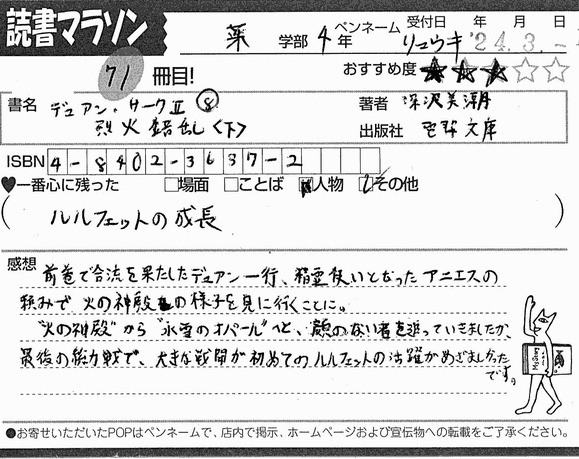 読書マラソン
薬 学部 4 年 ペンネーム リュウキ 受付日 '24.3.- 年 月 日
71 冊目!
おすすめ度 ★★★☆☆
書名 デュアン・サークⅡ ⑧
烈火錯乱〈下〉
著者 深沢美潮
出版社 電撃文庫
ISBN 4-8402-3637-2
♥一番心に残った □場面 □ことば ☑人物 ☑その他
( ルルフェットの成長 )
感想 前巻で合流を果たしたデュアン一行、精霊使いとなったアニエスの
頼みで 火の神殿の様子を見に行くことに。
"火の神殿"から"氷雪のオパール"へと、顔のない者を追っていきましたが、
最後の総力戦で、大きな戦闘が初めてのルルフェットの活躍がめざましかった
です。
●お寄せいただいたPOPはペンネームで、店内で掲示、ホームページおよび宣伝物への転載をご了承ください。